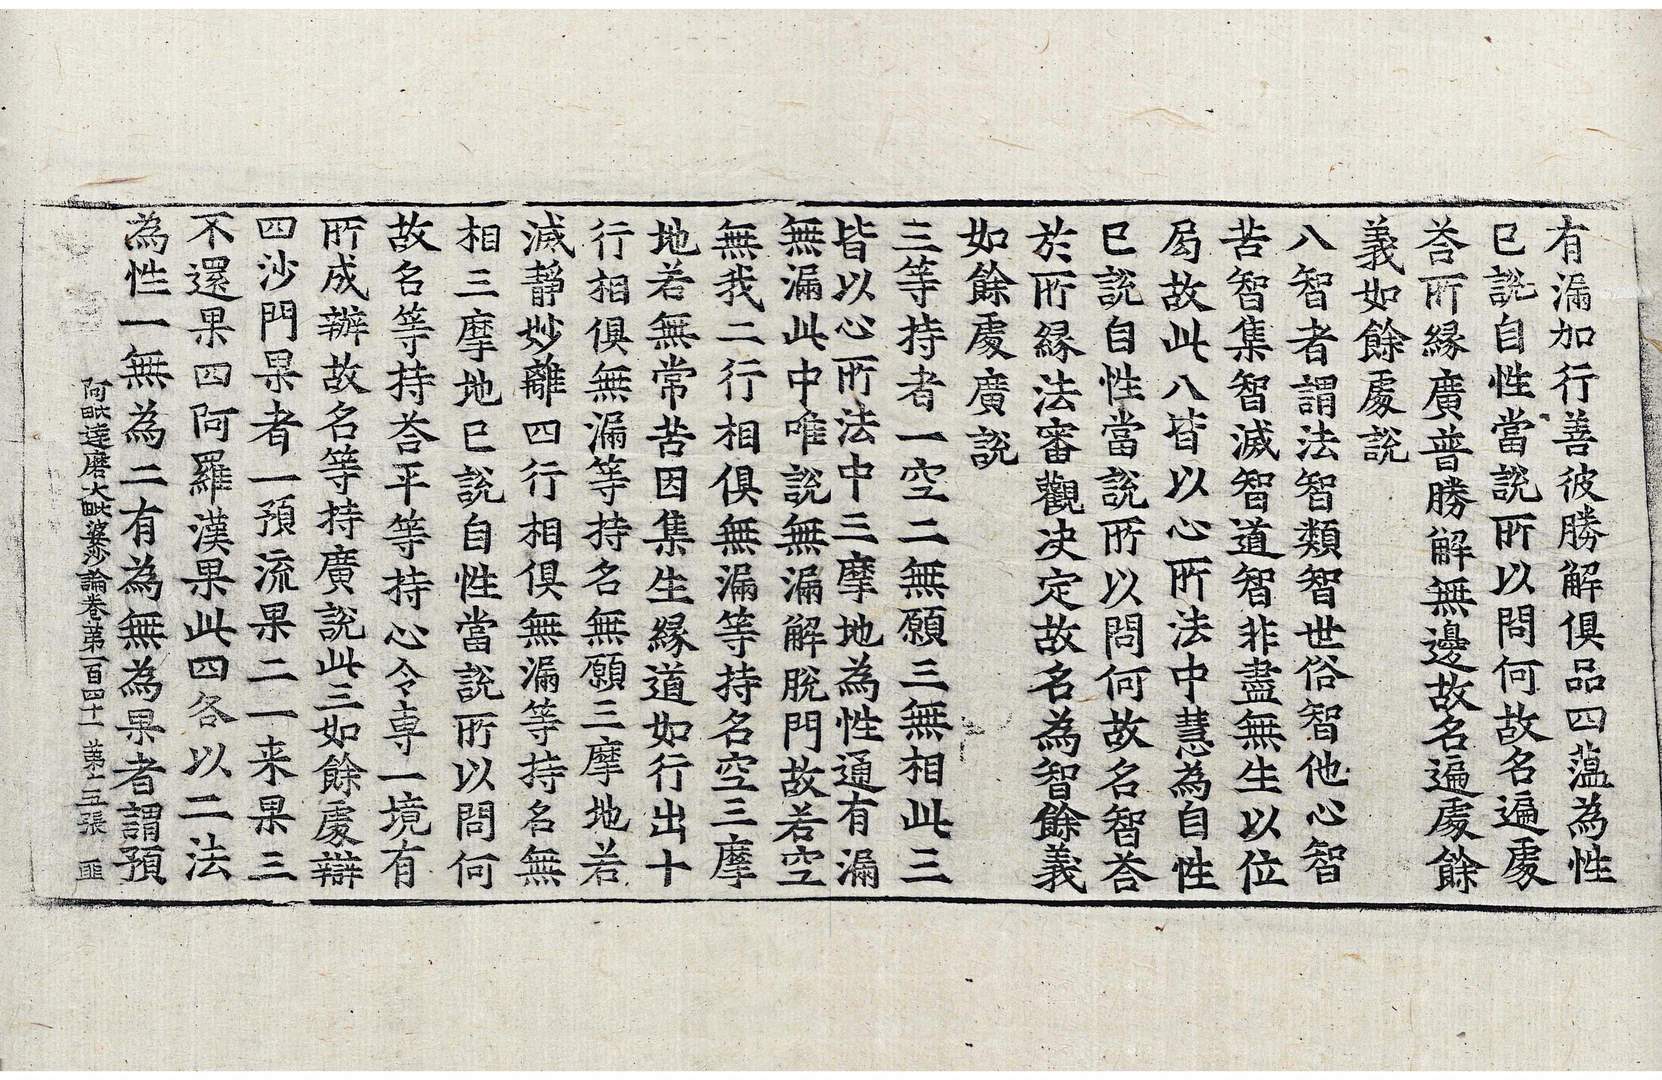 有漏加行善彼勝解俱品四蘊為性
已說自性當說所以問何故名遍處
荅所緣廣普勝解無邊故名遍處餘
義如餘處說
八智者謂法智類智世俗智他心智
苦智集智滅智道智非盡無生以位
局故此八皆以心所法中慧為自性
已說自性當說所以問何故名智荅
於所緣法審觀決定故名為智餘義
如餘處廣說
三等持者一空二無願三無相此三
皆以心所法中三摩地為性通有漏
無漏此中唯說無漏解脫門故若空
無我二行相俱無漏等持名空三摩
地若無常苦因集生緣道如行出十
行相俱無漏等持名無願三摩地若
滅靜妙離四行相俱無漏等持名無
相三摩地已說自性當說所以問何
故名等持荅平等持心令專一境有
所成辦故名等持廣說此三如餘處辯
四沙門果者一預流果二一来果三
不還果四阿羅漢果此四各以二法
為性一無為二有為無為果者謂預
阿毗達磨大毗婆沙論卷第一百四十一 第十五張 匪